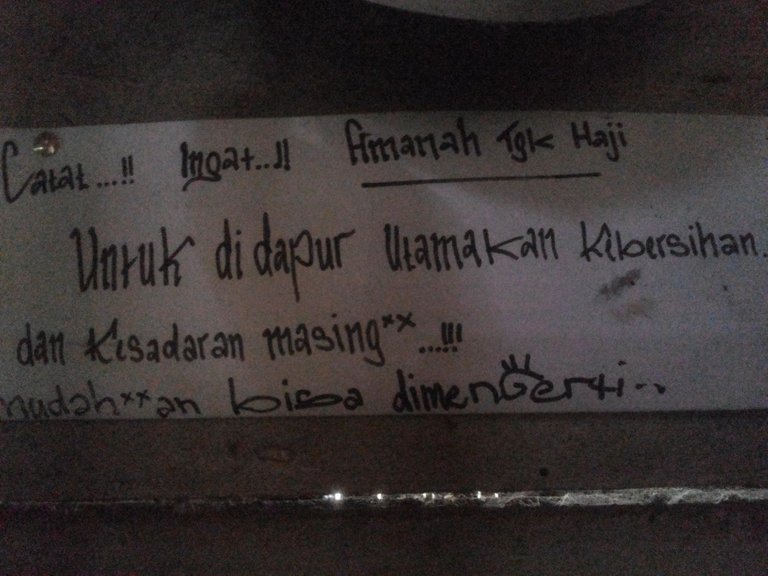 Catat...!! Ingat..!! Amanah Tgk Haji
Untuk di dapur Utamakan Kebersihan.
dan Kesadaran masing**...!!!
mudah**an bisa dimenGerti..